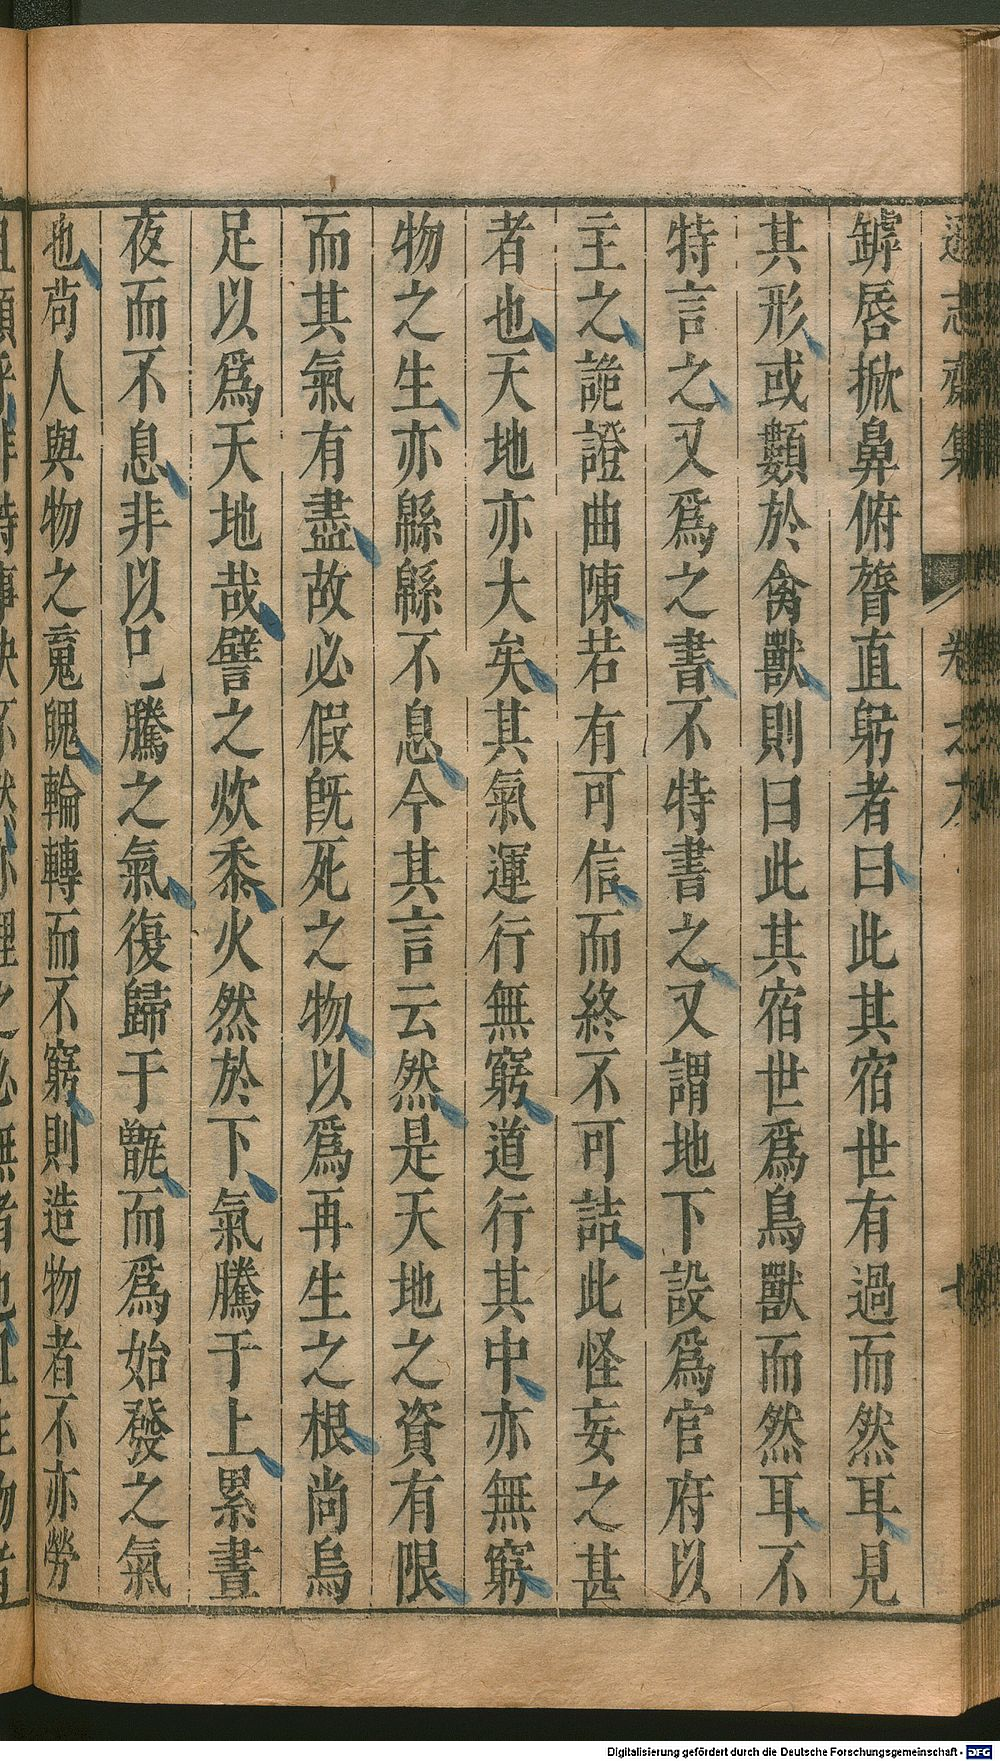 遜志齋集 卷之六 七
罅唇掀鼻俯膂直躬者曰此其宿世有過而然耳見
其形或類於禽獸則曰此其宿世爲鳥獸而然耳不
特言之又爲之書不特書之又謂地下設爲官府以
主之詭證曲陳若有可信而終不可詰此怪妄之甚
者也天地亦大矣其氣運行無窮道行其中亦無窮
物之生亦緜緜不息今其言云然是天地之資有限
而其氣有盡故必假旣死之物以爲再生之根尚烏
足以爲天地哉譬之炊黍火然於下氣騰于上累晝
夜而不息非以已騰之氣復歸于甑而爲始發之氣
也苟人與物之䰟魄輪轉而不窮則造物者不亦勞